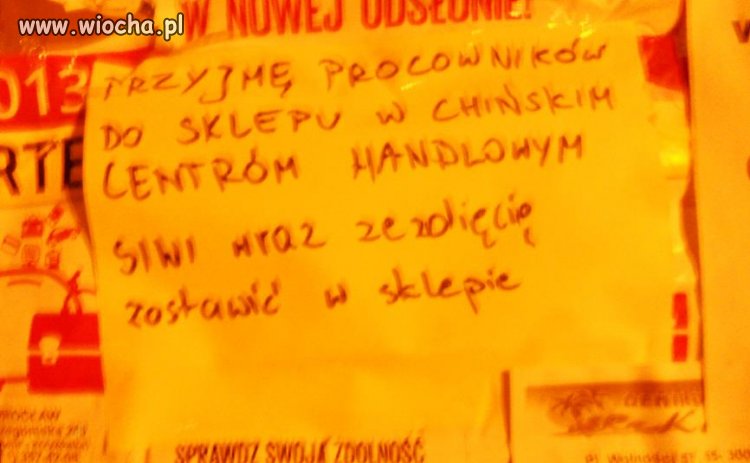 www.wiocha.pl
W NOWEJ ODSŁONIE!
013
RTE
PRZYJMĘ PROCOWNIKÓW
DO SKLEPU W CHIŃSKIM
CENTRÓM HANDLOWYM
SIWI wraz zezdięcią
zostawić w sklepie
SPRAWDZ SWOJĄ ZDOLNOŚĆ